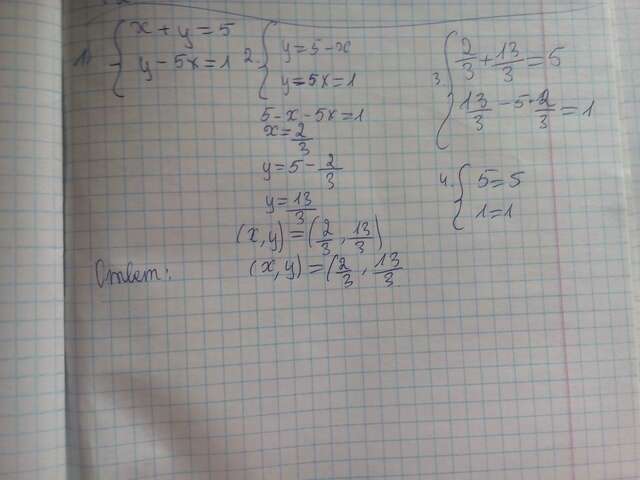 1) { x + y = 5
y - 5x = 1
2. { y = 5 - x
y = 5x = 1
5 - x - 5x = 1
x = 2/3
y = 5 - 2/3
y = 13/3
(x, y) = (2/3, 13/3)
Ответ: (x, y) = (2/3, 13/3
3. { 2/3 + 13/3 = 5
13/3 - 5 · 2/3 = 1
4. { 5 = 5
1 = 1